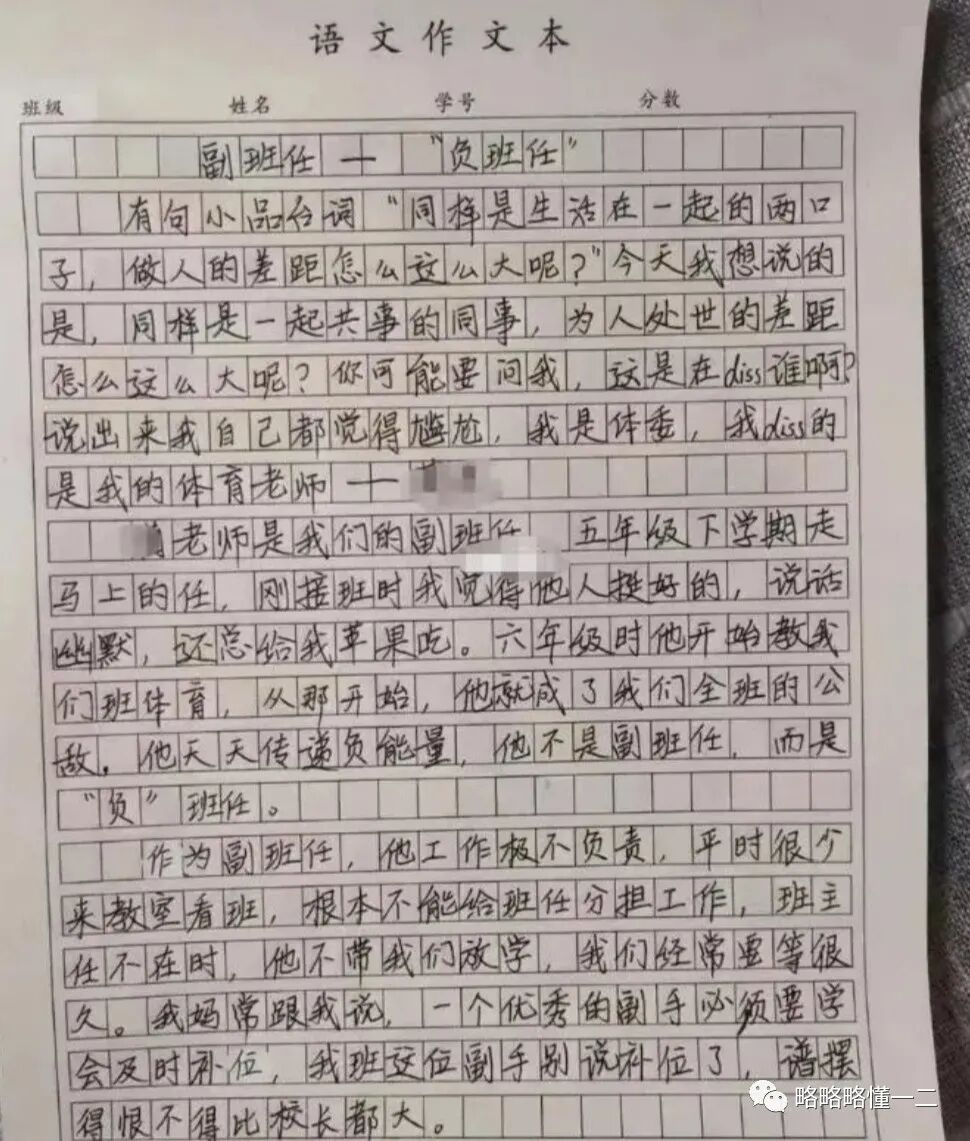 语文作文本
班级 姓名 学号 分数
副班任 — “负班任”
有句小品台词“同样是生活在一起的两口
子，做人的差距怎么这么大呢？”今天我想说的
是，同样是一起共事的同事，为人处世的差距
怎么这么大呢？你可能要问我，这是在diss谁啊？
说出来我自己都觉得尴尬，我是体委，我diss的
是我的体育老师 —
老师是我们的副班任 五年级下学期走
马上的任，刚接班时我觉得他人挺好的，说话
幽默，还总给我苹果吃。六年级时他开始教我
们班体育，从那开始，他就成了我们全班的公
敌。他天天传递负能量，他不是副班任，而是
“负”班任。
作为副班任，他工作极不负责，平时很少
来教室看班，根本不能给班任分担工作，班主
任不在时，他不带我们放学，我们经常要等很
久。我妈常跟我说，一个优秀的副手必须要学
会及时补位，我班这位副手别说补位了，谱摆
得恨不得比校长都大。
略略略懂一二